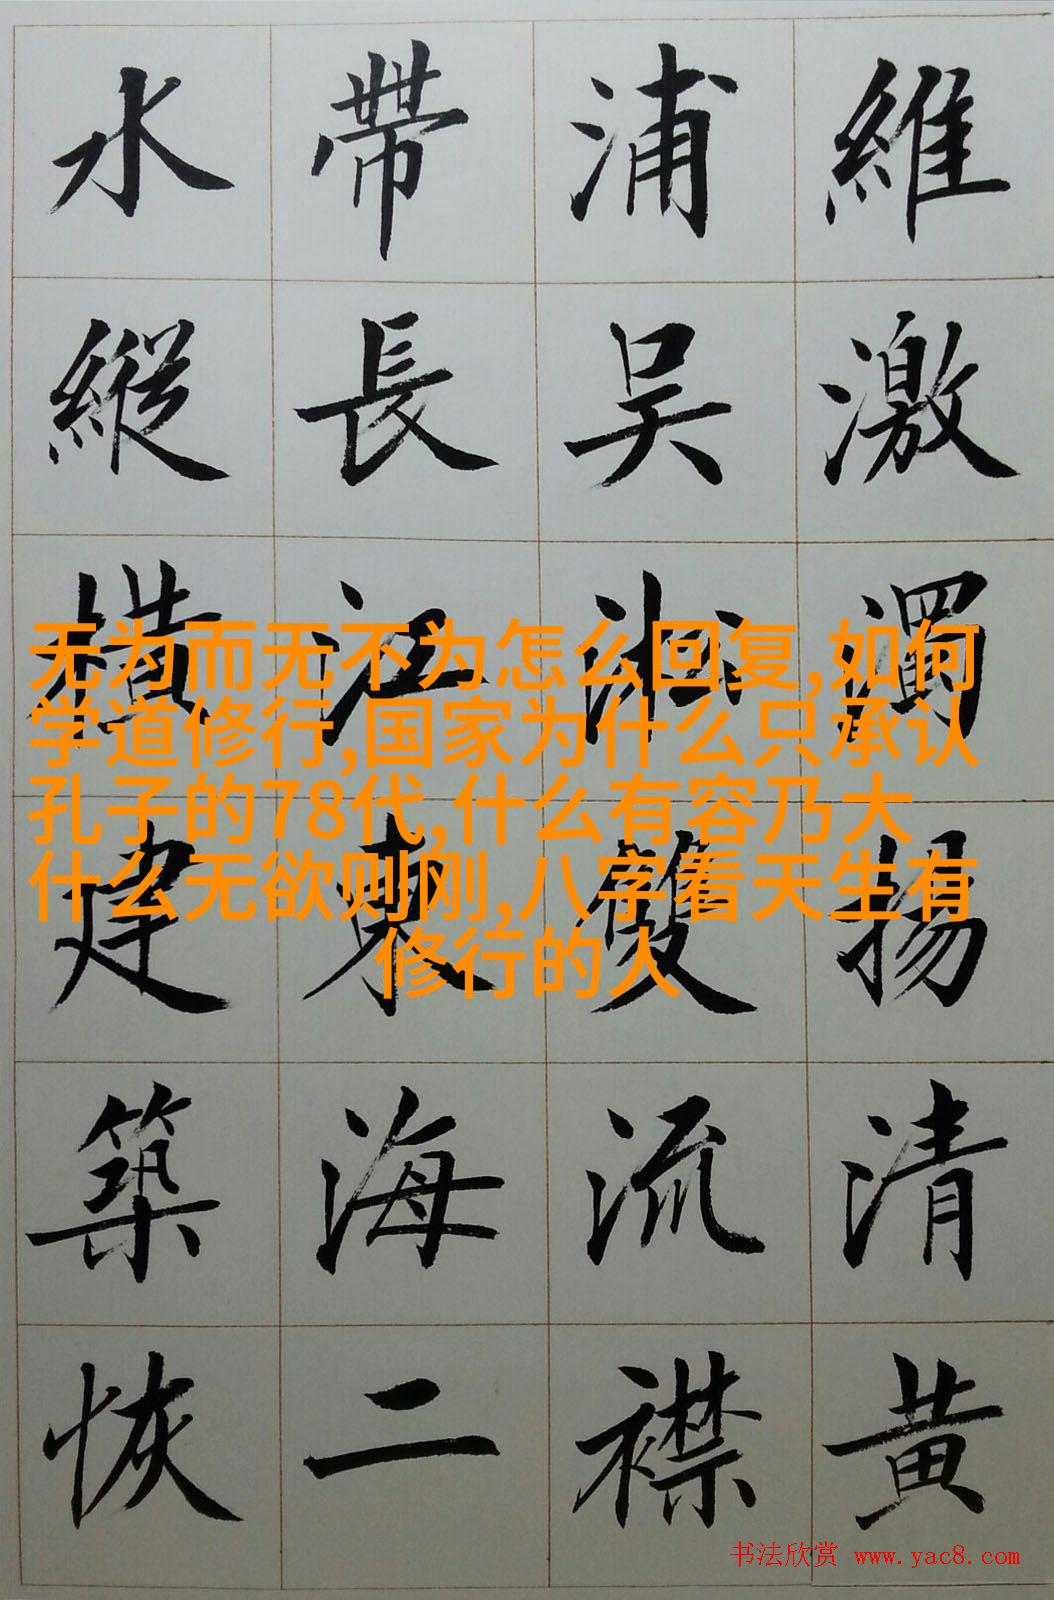 維激濁揚清黃
浦吳淞雙流襟
帶長江東海二
水縱橫建築恢
无为而无不为怎么回复,如何
学道修行,国家为什么只承认
孔子的78代,什么有容乃大
什么无欲则刚,八字看天生有
修行的人
书法欣赏 www.yac8.com